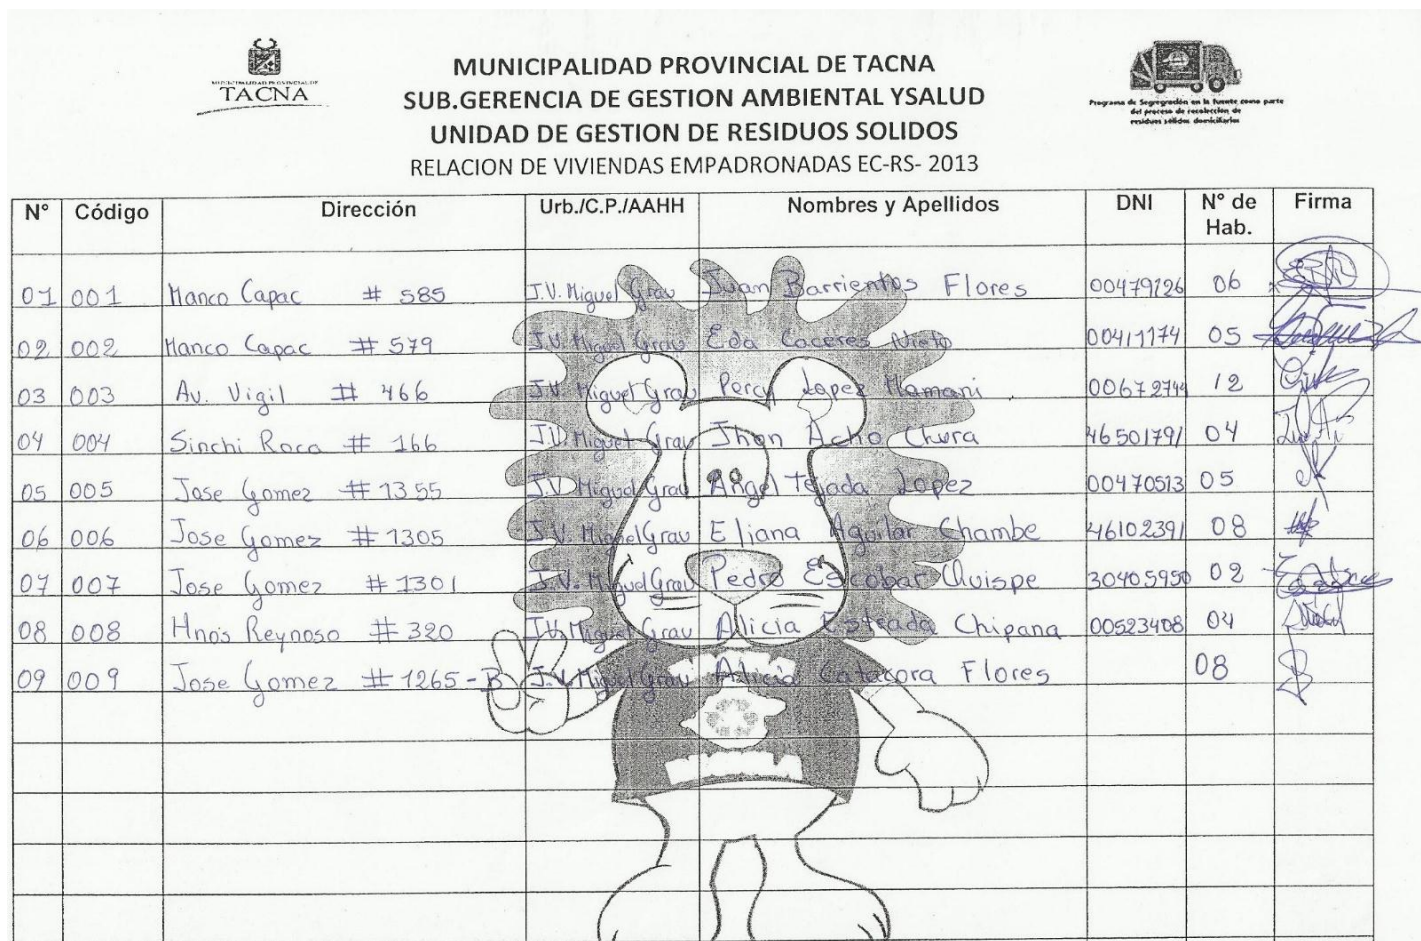 MUNICIPALIDAD PROVINCIAL DE
TACNA
MUNICIPALIDAD PROVINCIAL DE TACNA
SUB.GERENCIA DE GESTION AMBIENTAL YSALUD
UNIDAD DE GESTION DE RESIDUOS SOLIDOS
RELACION DE VIVIENDAS EMPADRONADAS EC-RS- 2013
Programa de Segregación en la fuente como parte
del proceso de recolección de
residuos sólidos domiciliarios
N° Código Dirección Urb./C.P./AAHH Nombres y Apellidos DNI N° de Hab. Firma
01 001 Manco Capac # 585 J.V. Miguel Grau Juan Barrientos Flores 00479126 06
02 002 Manco Capac # 579 J.V. Miguel Grau Eda Caceres Nieto 00411174 05
03 003 Av. Vigil # 466 J.V. Miguel Grau Percy Lopez Mamani 00672744 12
04 004 Sinchi Roca # 166 J.V. Miguel Grau Jhon Acho Chura 46501791 04
05 005 Jose Gomez # 1355 J.V. Miguel Grau Angel Tejada Lopez 00470513 05
06 006 Jose Gomez # 1305 J.V. Miguel Grau Eliana Aguilar Chambe 46102391 08
07 007 Jose Gomez # 1301 J.V. Miguel Grau Pedro Escobar Quispe 30405950 02
08 008 Hnos Reynoso # 320 J.V. Miguel Grau Alicia Esteada Chipana 00523408 04
09 009 Jose Gomez # 1265-B J.V. Miguel Grau Alicia Catacora Flores 08